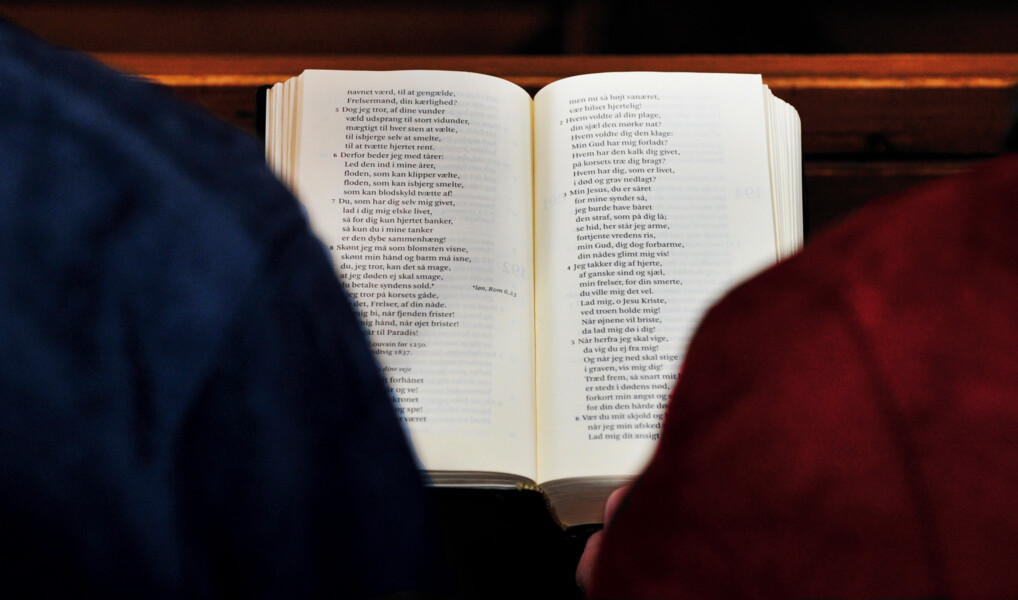 navnet værd, til at gengælde,
Frelsermand, din kærlighed?
5 Dog jeg tror, af dine vunder
væld udsprang til stort vidunder,
mægtigt til hver sten at vælte,
til isbjerge selv at smelte,
til at tvætte hjertet rent.
6 Derfor beder jeg med tårer:
Led den ind i mine årer,
floden, som kan klipper vælte,
floden, som kan isbjerg smelte,
som kan blodskyld tvætte af!
7 Du, som har dig selv mig givet,
lad i dig mig elske livet,
så for dig kun hjertet banker,
så kun du i mine tanker
er den dybe sammenhæng!
8 Skønt jeg må som blomsten visne,
skønt min hånd og barm må isne,
du, jeg tror, kan det så mage,
at jeg døden ej skal smage,
du betalte syndens sold.*
*løn, Rom 6,23
jeg tror på korsets gåde,
det, Frelser, af din nåde.
mig bi, når fjenden frister!
mig hånd, når øjet brister!
til Paradis!
ouvain før 1250.
dtvig 1837.
dine veje
forhånet
og ve!
kronet
og spe!
været
men nu så højt vanæret,
vær hilset hjertelig!
2 Hvem voldte al din plage,
din sjæl den mørke nat?
Hvem voldte dig den klage:
Min Gud har mig forladt?
Hvem har den kalk dig givet,
på korsets træ dig bragt?
Hvem har dig, som er livet,
i død og grav nedlagt?
3 Min Jesus, du er såret
for mine synder så,
jeg burde have båret
den straf, som på dig lå;
se hid, her står jeg arme,
fortjente vredens ris,
min Gud, dig dog forbarme,
din nådes glimt mig vis!
4 Jeg takker dig af hjerte,
af ganske sind og sjæl,
min frelser, for din smerte,
du ville mig det vel.
Lad mig, o Jesu Kriste,
ved troen holde mig!
Når øjnene vil briste,
da lad mig dø i dig!
5 Når herfra jeg skal vige,
da vig du ej fra mig!
Og når jeg ned skal stige
i graven, vis mig dig!
Træd frem, så snart mit
er stedt i dødens nød,
forkort min angst og
for din den hårde
6 Vær du mit skjold og
når jeg min afsked
Lad mig dit ansigt